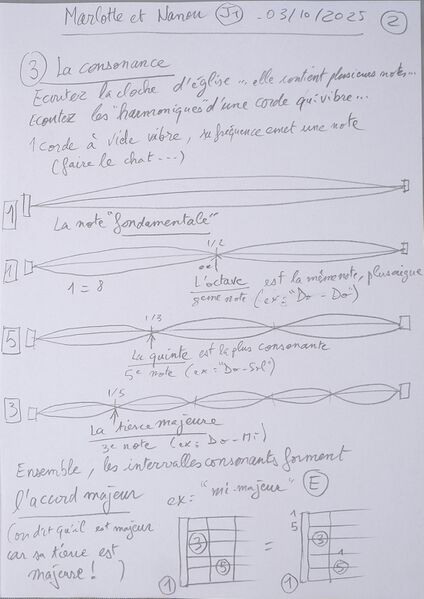 Marlotte et Nanou J1 - 03/10/2025 2
3 La consonance
Ecoutez la cloche d'église ... elle contient plusieurs notes...
Ecoutez les "harmoniques" d'une corde qui vibre...
1 corde à vide vibre, sa fréquence émet une note
(faire le chat ...)
1
La note "fondamentale"
1/2
1
1 = 8
L'octave est la même note, plus aigue
8eme note (ex = "Do - Do")
1/3
5
La quinte est la plus consonante
5e note (ex = "Do - Sol")
1/5
3
La tierce majeure
3e note (ex = Do - Mi)
Ensemble, les intervalles consonants forment
l'accord majeur ex = "mi majeur" E
(on dit qu'il est majeur
car sa tierce est
majeure ! )
3
5
1
=
1
5
3
1
5
1